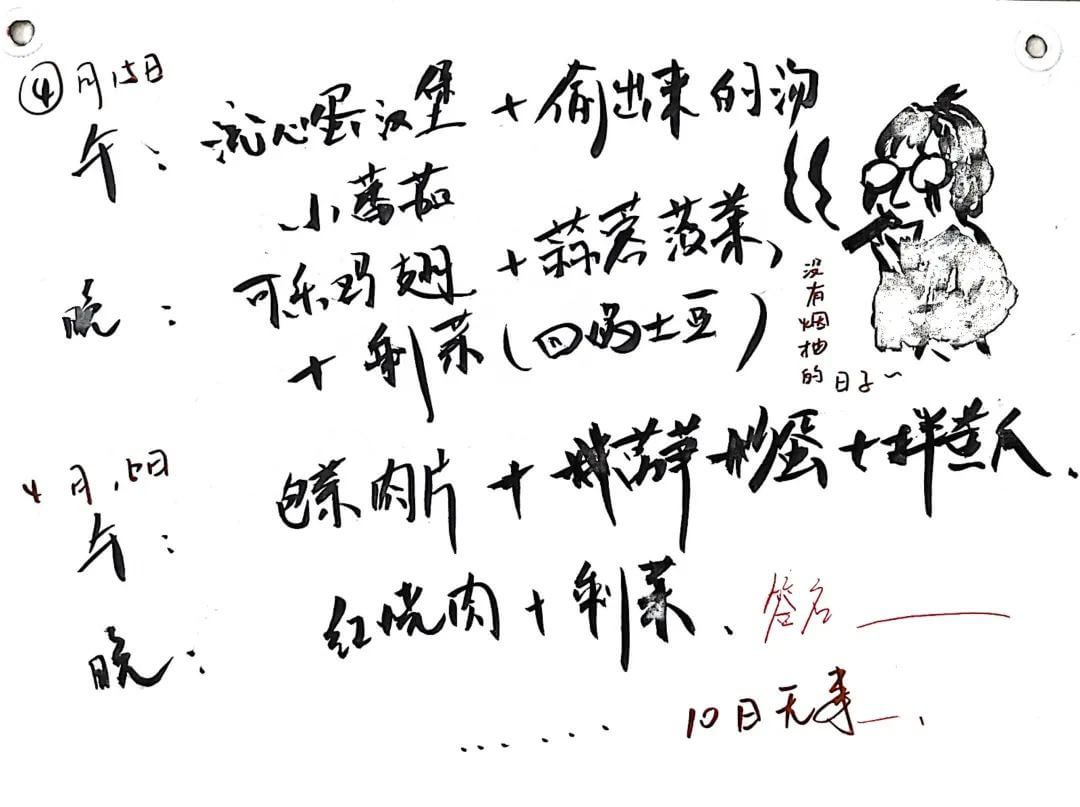 ④月15日
午：流心蛋汉堡+偷出来的汤
小蕃茄
晚：可乐鸡翅+蒜茗菠菜、
+剩菜(四妈土豆)
没有烟抽的日子~
4月15日
午：包菜肉片+拌荔笋炒蛋+拌黄瓜.
晚：红烧肉+剩菜.
签名
...... 10日无事.